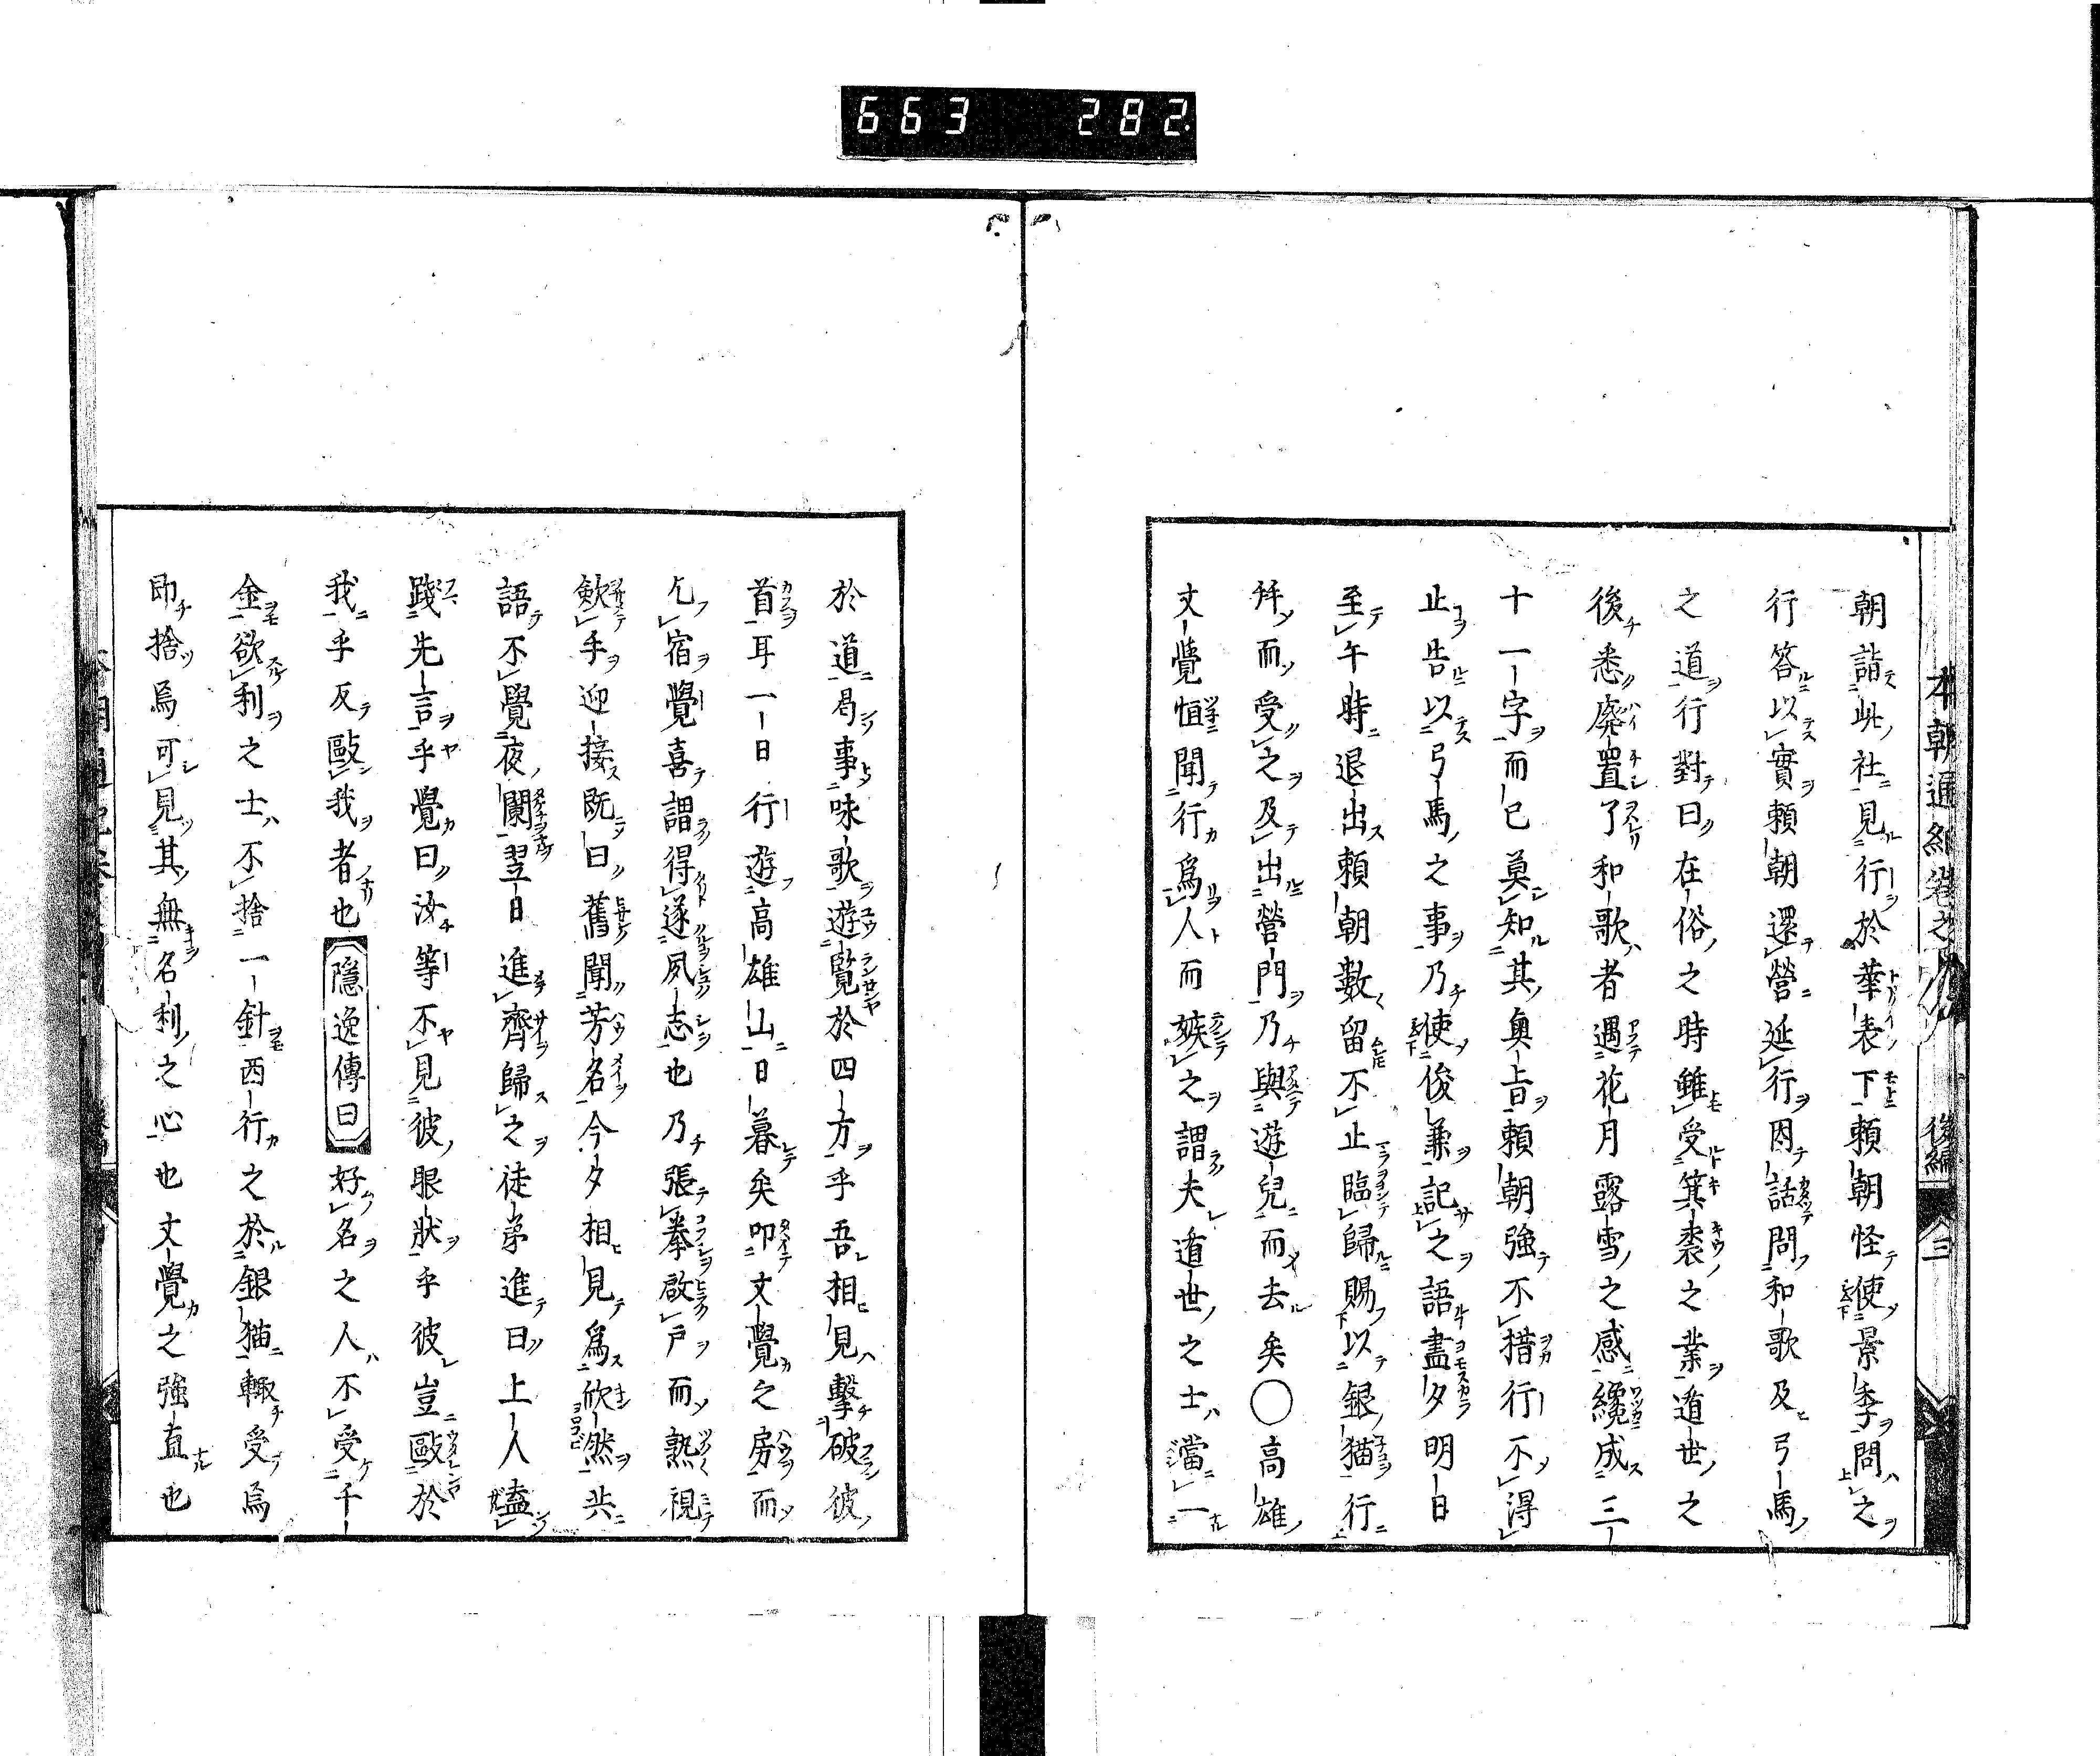 663 282
後編
三
朝詣此社見行於華表下頼朝怪使景季問之
行答以實頼朝還營延行因話問和歌及弓馬
之道行對曰在俗之時雖受箕裘之業遁世之
後悉廢置了和歌者遇花月露雪之感纔成三
十一字而已莫知其奥旨頼朝強不措行不得
止告以弓馬之事乃使俊兼記之語盡夕明日
至午時退出頼朝數留不止臨歸賜以銀猫行
拜而受之及出營門乃與遊兒而去矣○高雄
文覺恒聞行爲人而嫉之謂夫遁世之士當一
於道曷事味歌遊覽於四方乎吾相見擊破彼
首耳一日行遊高雄山日暮矣叩文覺之房而
乞宿覺喜謂得遂夙志也乃張拳啟戸而熟視
歛手迎接既曰舊聞芳名今夕相見爲欣然共
語不覺夜闌翌日進齊歸之徒弟進曰上人盍
踐先言乎覺曰汝等不見彼眼狀乎彼豈毆於
我乎反毆我者也隱逸傳曰好名之人不受千
金欲利之士不捨一針西行之於銀猫輙受焉
即捨焉可見其無名利之心也文覺之強直也